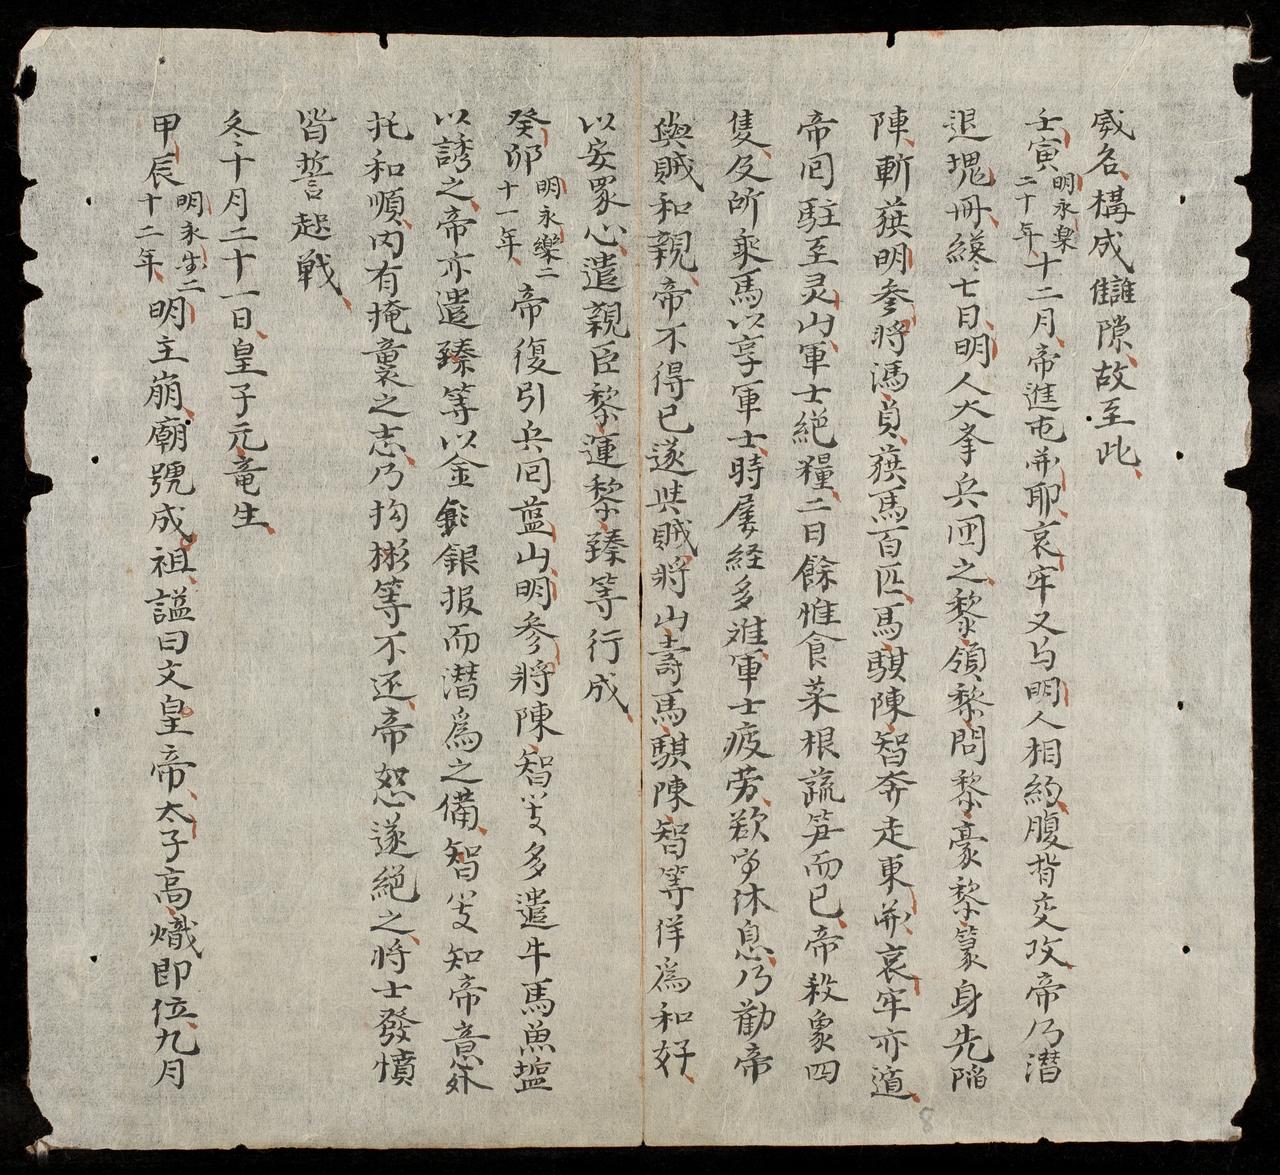 威名構成讎隙故至此
壬寅明永樂二十年十二月帝進屯𠀋耶哀牢又与明人相約腹背交攻帝乃潛
退塊冊縂七日明人大率兵囬之黎領黎問黎豪黎篆身先陷
陣斬𫉬明参將馮貞𫉬馬百匹馬騏陳智奔走東𠀋哀牢亦遁
帝囘駐至灵山軍士絕糧二日餘惟食菜根蔬笋而已帝殺象四
隻及所乘馬以享軍士時屡経多难軍士疲劳欲淂休息乃勸帝
與賊和親帝不得已遂與賊將山壽馬騏陳智等佯為和好
以安衆心遣親臣黎運黎臻等行成
癸卯明永樂二十一年帝復引兵囘藍山明参將陳智等多遣牛馬魚塩
以誘之帝亦遣臻等以金銀报而潛為之備智等知帝意外
托和順内有掩襲之志乃拘彬等不还帝怒遂絕之将士發憤
皆誓起戦
冬十月二十一日皇子元竜生
甲辰明永樂二十二年明主崩廟號成祖謚曰文皇帝太子高熾即位九月
8